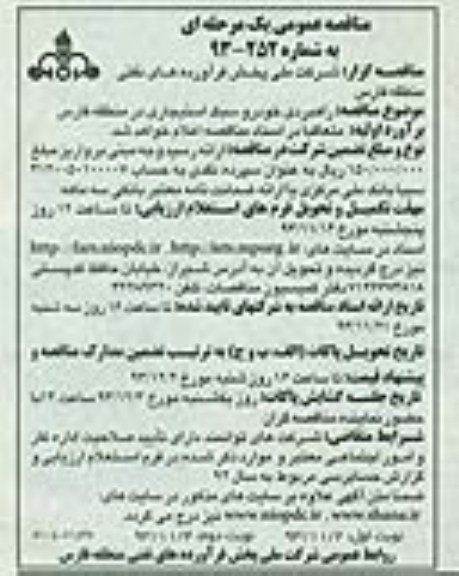 مناقصه عمومی یک مرحله ای
به شماره ۲۵۲-۹۳
مناقصه گزار: شرکت ملی پخش فرآورده های نفتی
منطقه فارس
موضوع مناقصه: راهبری خودرو سبک استیجاری در منطقه فارس
برآورد اولیه: متعاقبا در اسناد مناقصه اعلام خواهد شد.
نوع و مبلغ تضمین شرکت در مناقصه: ارائه رسید وجه مبنی بر واریز مبلغ
۱۵۰/۰۰۰/۰۰۰ ریال به عنوان سپرده نقدی به حساب
سیبا بانک ملی مرکزی یا ارائه ضمانت نامه معتبر بانکی سه ماهه
مهلت تکمیل و تحویل فرم های استعلام ارزیابی: تا ساعت ۱۲ روز
پنجشنبه مورخ
اسناد در سایت های: http://iets.mporg.ir , http://fars.niopdc.ir
نیز درج گردیده و تحویل آن به آدرس شیراز، خیابان حافظ
دفتر کمیسیون مناقصات، تلفن
تاریخ ارائه اسناد مناقصه به شرکتهای تایید شده: تا ساعت ۱۲ روز سه شنبه
مورخ
تاریخ تحویل پاکات (الف، ب و ج) به ترتیب تضمین مدارک مناقصه و
پیشنهاد قیمت: تا ساعت ۱۲ روز شنبه مورخ ۹۳/۱۲/۲
تاریخ جلسه گشایش پاکات: روز یکشنبه مورخ ۹۳/۱۲/۳ ساعت
حضور نماینده مناقصه گران
شرایط متقاضی: شرکت های توانمند دارای تأیید صلاحیت اداره کار
و امور اجتماعی معتبر و موارد ذکر شده در فرم استعلام ارزیابی و
گزارش حسابرسی مربوط به سال ۹۲
ضمنا متن آگهی علاوه بر سایت های مذکور در سایت های:
www.niopdc.ir , www.shana.ir نیز درج می گردد.
نوبت اول: نوبت دوم:
روابط عمومی شرکت ملی پخش فرآورده های نفتی منطقه فارس